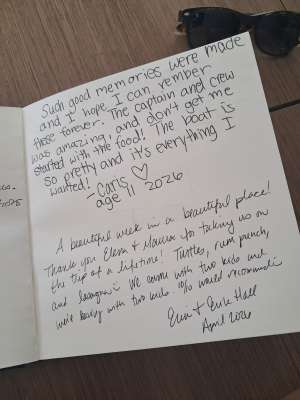 Such good memories were made
and I hope I can rember
these forever. The captain and crew
was amazing, and don't get me
started with the food! The boat is
so pretty and it's everything I
wanted!
- Caris ♡
age 11 2026
A beautiful week in a beautiful place!
Thank you Elena & for taking us on
the trip of a lifetime! Turtles, rum punch,
and lasagna! We came with two kids and
we're leaving with two kids. 10/10 would recommend!
Erin + Erik Hall
April 2026